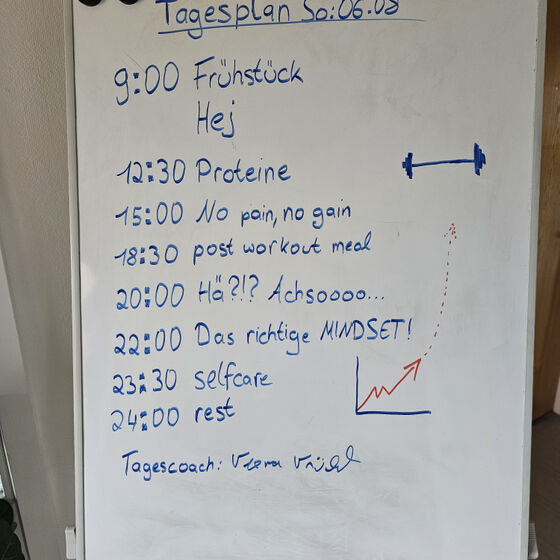 Tagesplan So: 06.08
9:00 Frühstück
Hej
12:30 Proteine
15:00 No pain, no gain
18:30 post workout meal
20:00 Hä?!? Achsoooo...
22:00 Das richtige MINDSET!
23:30 selfcare
24:00 rest
Tagescoach: